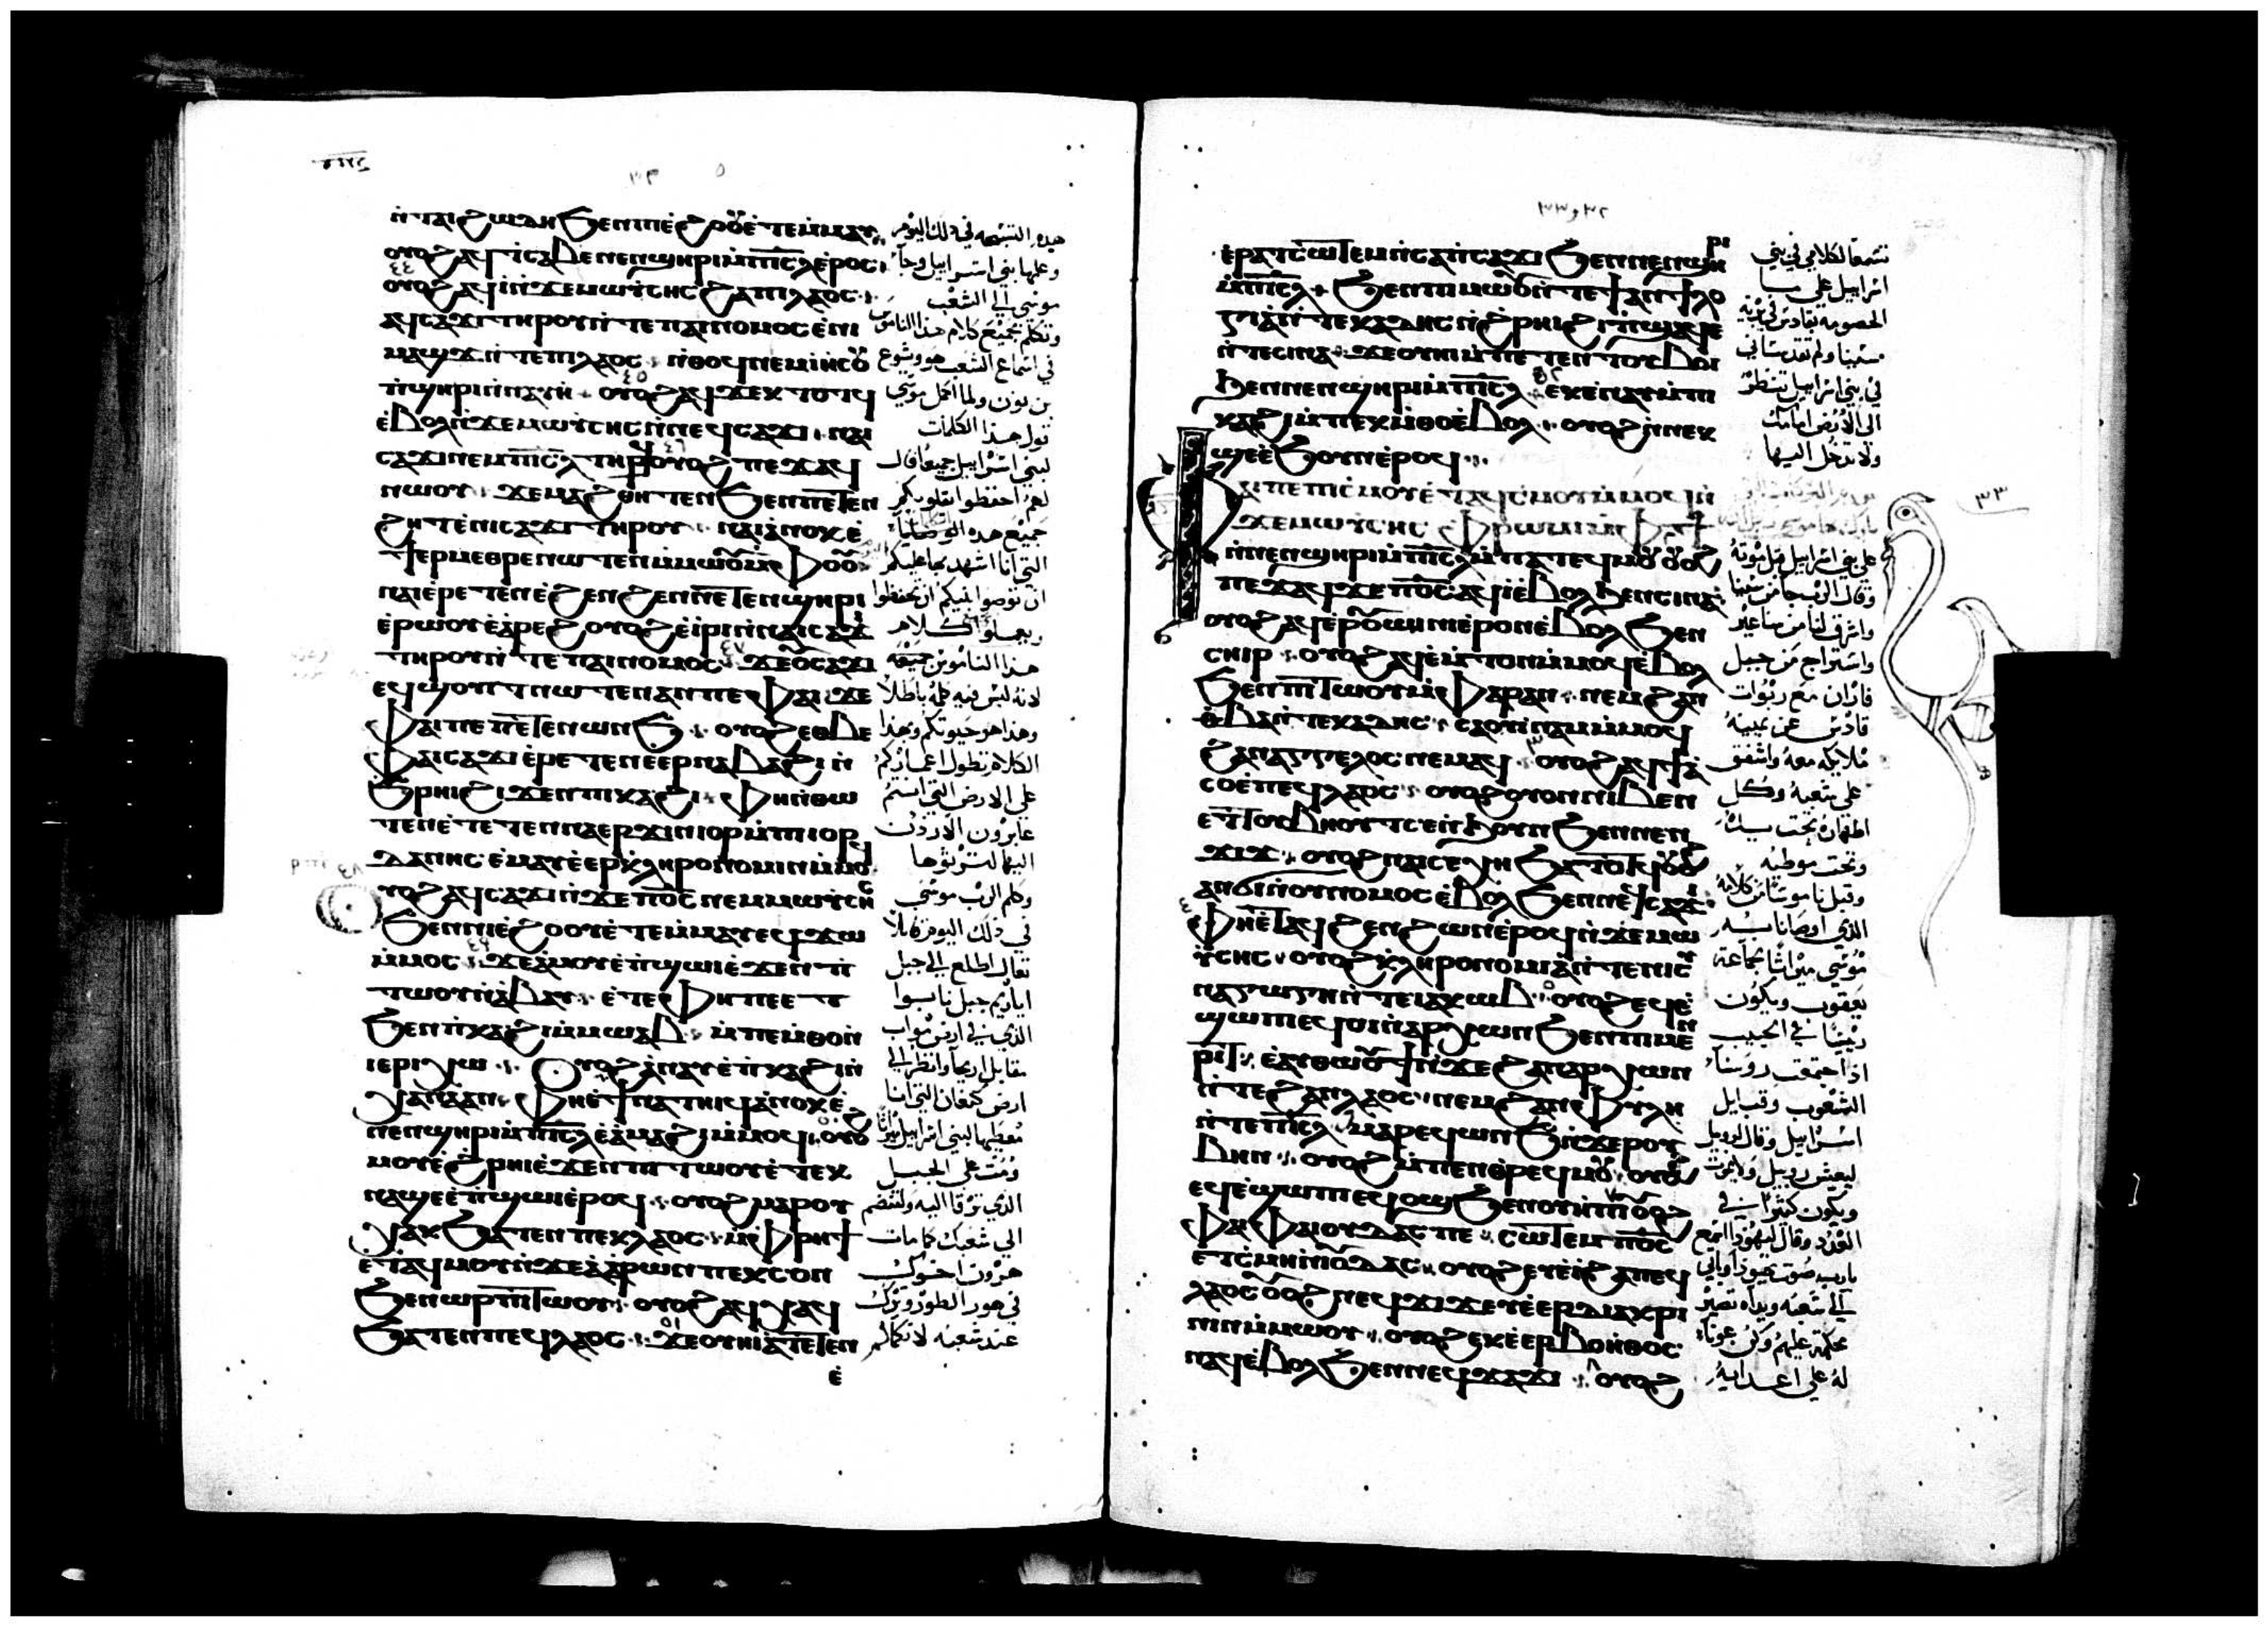 ⲛ̀ⲧⲁⲓϩⲱⲇⲏ ϧⲉⲛⲡⲓⲉ̀ϩⲟⲟⲩ ⲉ̀ⲧⲉⲙ̀ⲙⲁⲩ
ⲟⲩⲟϩ ⲁϥϯⲥⲁⲃⲉ ⲛⲉⲛϣⲏⲣⲓ ⲙ̀ⲡⲓⲥ̅ⲗ̅ ⲉ̀ⲣⲟⲥ
ⲟⲩⲟϩ ⲁϥⲓ̀ⲛ̀ϫⲉⲙⲱⲩ̀ⲥⲏⲥ ϩⲁⲡⲓⲗⲁⲟⲥ
ⲁϥⲥⲁϫⲓ ⲧⲏⲣⲟⲩ ⲛ̀ⲧⲉ ⲡⲁⲓⲛⲟⲙⲟⲥ ⲉ̀ⲛⲓ
ⲙⲁϣϫ ⲛ̀ⲧⲉⲡⲓⲗⲁⲟⲥ ⲛ̀ⲑⲟϥ ⲛⲉⲙ ⲓⲏⲥⲟⲩ
ⲡ̀ϣⲏⲣⲓ ⲛ̀ⲛⲁⲩⲏ ⲟⲩⲟϩ ⲁϥϫⲉⲕ ⲧⲟⲧϥ
ⲉ̀ⲃⲟⲗ ⲛ̀ϫⲉⲙⲱⲩ̀ⲥⲏⲥ ⲛ̀ⲛⲉϥⲥⲁϫⲓ ⲛⲁⲓ
ⲥⲁϫⲓ ⲛⲉⲙ ⲡⲓⲥ̅ⲗ̅ ⲧⲏⲣϥ ⲟⲩⲟϩ ⲡⲉϫⲁϥ
ⲛⲱⲟⲩ ϫⲉⲙⲁϩⲑⲏⲧⲉⲛ ϧⲉⲛⲡⲉⲧⲉⲛ
ϩⲏⲧ ⲉ̀ⲛⲓⲥⲁϫⲓ ⲧⲏⲣⲟⲩ ⲛⲁⲓ ⲁ̀ⲛⲟⲕ ⲉ̀
ϯⲉⲣⲙⲉⲑⲣⲉ ⲛⲱⲧⲉⲛ ⲙ̀ⲙⲱⲟⲩ ⲙ̀ⲫⲟⲟⲩ
ⲛⲁⲓ ⲉ̀ⲣⲉⲧⲉⲛⲉ̀ϩⲉⲛϩⲉⲛ ⲛⲉⲧⲉⲛϣⲏⲣⲓ
ⲉ̀ⲣⲱⲟⲩ ⲉ̀ⲁ̀ⲣⲉϩ ⲟⲩⲟϩ ⲉ̀ⲓ̀ⲣⲓ ⲛ̀ⲛⲁⲓⲥⲁϫⲓ
ⲧⲏⲣⲟⲩ ⲛ̀ⲧⲉ ⲡⲁⲓⲛⲟⲙⲟⲥ ϫⲉⲟⲩⲥⲁϫⲓ
ⲉϥϣⲟⲩⲓⲧ ⲛⲱⲧⲉⲛ ⲁⲛ ⲡⲉ ⲫⲁⲓ ϫⲉ
ⲫⲁⲓ ⲡⲉ ⲡⲉⲧⲉⲛⲱⲛϧ ⲟⲩⲟϩ ⲉⲑⲃⲉ
ⲫⲁⲓⲥⲁϫⲓ ⲉ̀ⲣⲉⲧⲉⲛⲉⲉⲣⲛⲁⲃⲁϩⲓ ⲛ̀
ϩ̀ⲣⲏⲓ ϩⲓϫⲉⲛⲡⲓⲕⲁϩⲓ ⲫⲏ ⲛ̀ⲑⲱ
ⲧⲉⲛ ⲉ̀ⲧⲉⲧⲉⲛⲛⲁⲉⲣϫⲓⲛⲓⲟⲣ ⲙ̀ⲡⲓⲓⲟⲣ
ⲇⲁⲛⲏⲥ ⲉ̀ⲙⲁⲩ ⲉ̀ⲉⲣⲕ̀ⲗⲏⲣⲟⲛⲟⲙⲓⲛ ⲙ̀ⲙⲟϥ
ⲟⲩⲟϩ ⲁϥⲥⲁϫⲓ ⲛ̀ϫⲉⲡⲟ̅ⲥ̅ ⲛⲉⲙ ⲙⲱⲩⲥⲏⲥ
ϧⲉⲛⲡⲓⲉ̀ϩⲟⲟⲩ ⲉ̀ⲧⲉⲙ̀ⲙⲁⲩ ⲉϥϫⲱ
ⲙ̀ⲙⲟⲥ ϫⲉⲁ̀ⲙⲟⲩ ⲉ̀ⲡ̀ϣⲱⲓ ⲉ̀ϫⲉⲛⲡⲓ
ⲧⲱⲟⲩ ⲛ̀ⲁ̀ⲃⲁⲣ ⲉ̀ⲧⲉ ⲫⲏ ⲡⲉ ⲉⲧ
ϧⲉⲛⲡ̀ⲕⲁϩⲓ ⲙ̀ⲙⲱⲁⲃ ⲙ̀ⲡⲉⲙ̀ⲑⲟ ⲛ̀
ⲓⲉⲣⲓⲭⲱ ⲟⲩⲟϩ ⲁ̀ⲛⲁⲩ ⲉ̀ⲡ̀ⲕⲁϩⲓ ⲛ̀
ⲭⲁⲛⲁⲁⲛ ⲫⲏ ⲉ̀ϯⲛⲁⲧⲏⲓϥ ⲁ̀ⲛⲟⲕ ⲉ̀
ⲛⲉⲛϣⲏⲣⲓ ⲙ̀ⲡⲓⲥ̅ⲗ̅ ⲉ̀ⲁ̀ⲙⲁϩⲓ ⲙ̀ⲙⲟϥ ⲟⲩⲟϩ
ⲙⲟⲩ ⲉ̀ϩ̀ⲣⲏⲓ ⲉ̀ϫⲉⲛⲡⲓⲧⲱⲟⲩ ⲉ̀ⲧⲉⲕ
ⲛⲁϣⲉ ⲉ̀ⲡ̀ϣⲱⲓ ⲉ̀ⲣⲟϥ ⲟⲩⲟϩ ⲙⲁⲣⲟⲩ
ⲭⲁⲕ ϧⲁⲧⲉⲛ ⲡⲉⲕⲗⲁⲟⲥ ⲙ̀ⲫⲣⲏϯ
ⲉ̀ⲧⲁϥⲙⲟⲩ ⲛ̀ϫⲉⲁ̀ⲁ̀ⲣⲱⲛ ⲡⲉⲕⲥⲟⲛ
ϧⲉⲛⲱⲣ ⲡⲓⲧⲱⲟⲩ ⲟⲩⲟϩ ⲁϥⲭⲁϥ
ϧⲁⲧⲉⲛ ⲡⲉϥⲗⲁⲟⲥ ϫⲉⲟⲩⲏⲓ ⲁ̀ⲧⲉⲧⲉⲛ
ⲉ̀
هذه التسبحه في ذلك اليوم
وعلمها بني اسراييل وجآ
موسى الى الشعب
وتكلم بجميع كلام هذا الناموس
في اسماع الشعب هو ويشوع
بن نون ولما اكمل موسى
قول هذا الكلمات
لبني اسراييل جميعا قال
لهم احفظوا بقلوبكم
جميع هذه الوصايا
التي انا اشهد بها عليكم
ان توصوا بنيكم ان يحفظوا
ويعملوا كلام
هذا الناموس جميعه
لانه ليس فيه كلمة باطلا
وهذا هو حيوتكم وبهذا
الكلام تطول اعماركم
على الارض التي انتم
عابرون الاردن
اليها لترثوها
وكلم الرب موسى
في ذلك اليوم قايلا
تعال اطلع الى جبل
الذي في ارض مواب
مقابل اريحا وانظر الى
ارض كنعان التي انا
معطيها لبني اسراييل ميراثا
ومت على الجبل
الذي ترقا اليه ولتنضم
الى شعبك كما مات
هرون اخوك
في هور الطور وترك
عند شعبه لانكما لم
٣٢ و٣٣
ⲉ̀ⲣⲁⲧⲥⲱⲧⲉⲙ ⲛ̀ⲥⲁⲡⲁⲥⲁϫⲓ ϧⲉⲛⲛⲉⲛϣⲏⲣⲓ
ⲙ̀ⲡⲓⲥ̅ⲗ̅ ϧⲉⲛⲡⲓⲙⲱⲟⲩ ⲛ̀ⲧⲉ ϯⲁⲛⲧⲓⲗⲟ
ⲅⲓⲁ ⲛ̀ⲧⲉ ⲕⲁⲇⲏⲥ ⲛ̀ϩ̀ⲣⲏⲓ ϩⲓⲡ̀ϣⲁϥⲉ
ⲛ̀ⲧⲉⲥⲓⲛⲁ ϫⲉⲟⲩⲏⲓ ⲙ̀ⲡⲉⲧⲉⲛⲧⲟⲩⲃⲟⲓ
ϧⲉⲛⲛⲉⲛϣⲏⲣⲓ ⲙ̀ⲡⲓⲥ̅ⲗ̅ ⲉⲕⲉ̀ⲛⲁⲩ ⲙ̀ⲡⲓ
ⲕⲁϩⲓ ⲙ̀ⲡⲉⲕⲙ̀ⲑⲟ ⲉ̀ⲃⲟⲗ ⲟⲩⲟϩ ⲛ̀ⲛⲉⲕ
ϣⲉ ⲉ̀ϧⲟⲩⲛ ⲉ̀ⲣⲟϥ
ⲫⲁⲓ ⲡⲉ ⲡⲓⲥ̀ⲙⲟⲩ ⲉ̀ⲧⲁϥⲥ̀ⲙⲟⲩ ⲙ̀ⲙⲟϥ ⲛ̀
ϫⲉⲙⲱⲩ̀ⲥⲏⲥ ⲫⲣⲱⲙⲓ ⲙ̀ⲫϯ
ⲛ̀ⲛⲉⲛϣⲏⲣⲓ ⲙ̀ⲡⲓⲥ̅ⲗ̅ ⲙ̀ⲡⲁⲧⲉϥⲙⲟⲩ ⲟⲩⲟϩ
ⲡⲉϫⲁϥ ϫⲉⲡⲟ̅ⲥ̅ ⲁϥⲓ̀ ⲉ̀ⲃⲟⲗ ϧⲉⲛⲥⲓⲛⲁ
ⲟⲩⲟϩ ⲁϥⲉⲣⲟⲩⲱⲓⲛⲓ ⲉ̀ⲣⲟⲛ ⲉ̀ⲃⲟⲗ ϧⲉⲛ
ⲥⲏⲓⲣ ⲟⲩⲟϩ ⲁϥⲉ̀ⲙⲧⲟⲛ ⲙ̀ⲙⲟϥ ⲉ̀ⲃⲟⲗ
ϧⲉⲛⲡⲓⲧⲱⲟⲩ ⲙ̀ⲫⲁⲣⲁⲛ ⲛⲉⲙ ϩⲁⲛ
ⲑ̀ⲃⲁ ⲛ̀ⲧⲉ ⲕⲁⲇⲏⲥ ⲥⲁⲟⲩⲓ̀ⲛⲁⲙ ⲙ̀ⲙⲟϥ
ϩⲁⲛⲁⲅⲅⲉⲗⲟⲥ ⲛⲉⲙⲁϥ ⲟⲩⲟϩ ⲁϥϯⲁ̀
ⲥⲟ ⲉ̀ⲡⲉϥⲗⲁⲟⲥ ⲟⲩⲟϩ ⲟⲩⲟⲛ ⲛⲓⲃⲉⲛ
ⲉⲧⲧⲟⲩⲃⲏⲟⲩⲧ ⲥⲉⲛ̀ϧⲟⲩⲛ ϧⲉⲛⲛⲉⲛ
ϫⲓϫ ⲟⲩⲟϩ ⲛⲁⲓ ⲥⲉⲭⲏ ϧⲁⲧⲟⲧⲕ ⲟⲩⲟϩ
ⲁⲛϭⲓ ⲛ̀ⲟⲩⲛⲟⲙⲟⲥ ⲉ̀ⲃⲟⲗ ϧⲉⲛⲛⲉϥⲥⲁϫⲓ
ⲫⲏ ⲉ̀ⲧⲁϥϩⲉⲛϩⲱⲛ ⲉ̀ⲣⲟϥ ⲛ̀ϫⲉⲙⲱ
ⲩ̀ⲥⲏⲥ ⲟⲩⲟϩ ⲕ̀ⲗⲏⲣⲟⲛⲟⲙⲓⲁ ⲛ̀ⲧⲉⲛⲓⲥⲩ
ⲛⲁⲅⲱⲅⲏ ⲛ̀ⲧⲉ ⲓⲁⲕⲱⲃ ⲟⲩⲟϩ ⲉϥⲉ̀
ϣⲱⲡⲓ ⲉϥⲟⲓ ⲛ̀ⲁⲣⲭⲱⲛ ϧⲉⲛⲡⲓⲙⲉⲛ
ⲣⲓⲧ ⲉ̀ⲁⲩⲑⲱⲟⲩϯ ⲛ̀ϫⲉϩⲁⲛⲁⲣⲭⲱⲛ
ⲛ̀ⲧⲉ ϩⲁⲛⲗⲁⲟⲥ ⲛⲉⲙ ϩⲁⲛⲫⲩⲗⲏ
ⲛ̀ⲧⲉ ⲡⲓⲥ̅ⲗ̅ ⲙⲁⲣⲉϥⲱⲛϧ ⲛ̀ϫⲉⲣⲟⲩ
ⲃⲏⲛ ⲟⲩⲟϩ ⲙ̀ⲡⲉⲛⲑⲣⲉϥⲙⲟⲩ ⲟⲩⲟϩ
ⲉϥⲉ̀ϣⲱⲡⲓ ⲉϥⲟϣ ϧⲉⲛⲟⲩⲏⲡⲓ ⲟⲩⲟϩ
ⲫⲁⲓ ⲫⲁ ⲓⲟⲩⲇⲁⲥ ⲡⲉ ⲥⲱⲧⲉⲙ ⲡⲟ̅ⲥ̅
ⲉⲧ̀ⲥⲙⲏ ⲛ̀ⲓⲟⲩⲇⲁⲥ ⲟⲩⲟϩ ⲉⲩⲉ̀ⲓ̀ ϩⲁⲡⲉϥ
ⲗⲁⲟⲥ ⲟⲩⲟϩ ⲛⲉϥϫⲓϫ ⲉⲩⲉ̀ⲉⲣⲇⲓⲁⲕⲣⲓ
ⲛⲓⲛ ⲙ̀ⲙⲱⲟⲩ ⲟⲩⲟϩ ⲉⲕⲉ̀ⲉⲣⲃⲟⲏⲑⲟⲥ
ⲛⲁϥ ⲉ̀ⲃⲟⲗ ϧⲉⲛⲛⲉϥϫⲁϫⲓ ⲟⲩⲟϩ
تسمعا لكلامي في بني
اسراييل على ما
الخصومه بقادس في برية
سينا ولم تقدساني
في بني اسراييل تنظر
الى الارض امامك
ولا تدخل اليها
٣٣
على بني اسراييل قبل موته
وقال الرب جا من سينا
واشرق لنا من ساعير
واستراح من جبل
فاران مع ربوات
قادس عن يمينه
ملايكه معه واشفق
على شعبه وكل
وتحت موطيه
وقبل ناموسا من كلامه
الذي اوصانا به
موسى ميراثا لجماعة
يعقوب ويكون
رييسا في الحبيب
اذا اجتمعت روسا
الشعوب وقبايل
اسراييل وقال لروبيل
ليعش روبيل ولا يموت
ويكون كثيرا في
العدد وقال ليهوذا اسمع
يا رب صوت يهوذا وياتي
الى شعبه ويداه تصير
تحكم عليهم وكن عونا
له على اعدايه